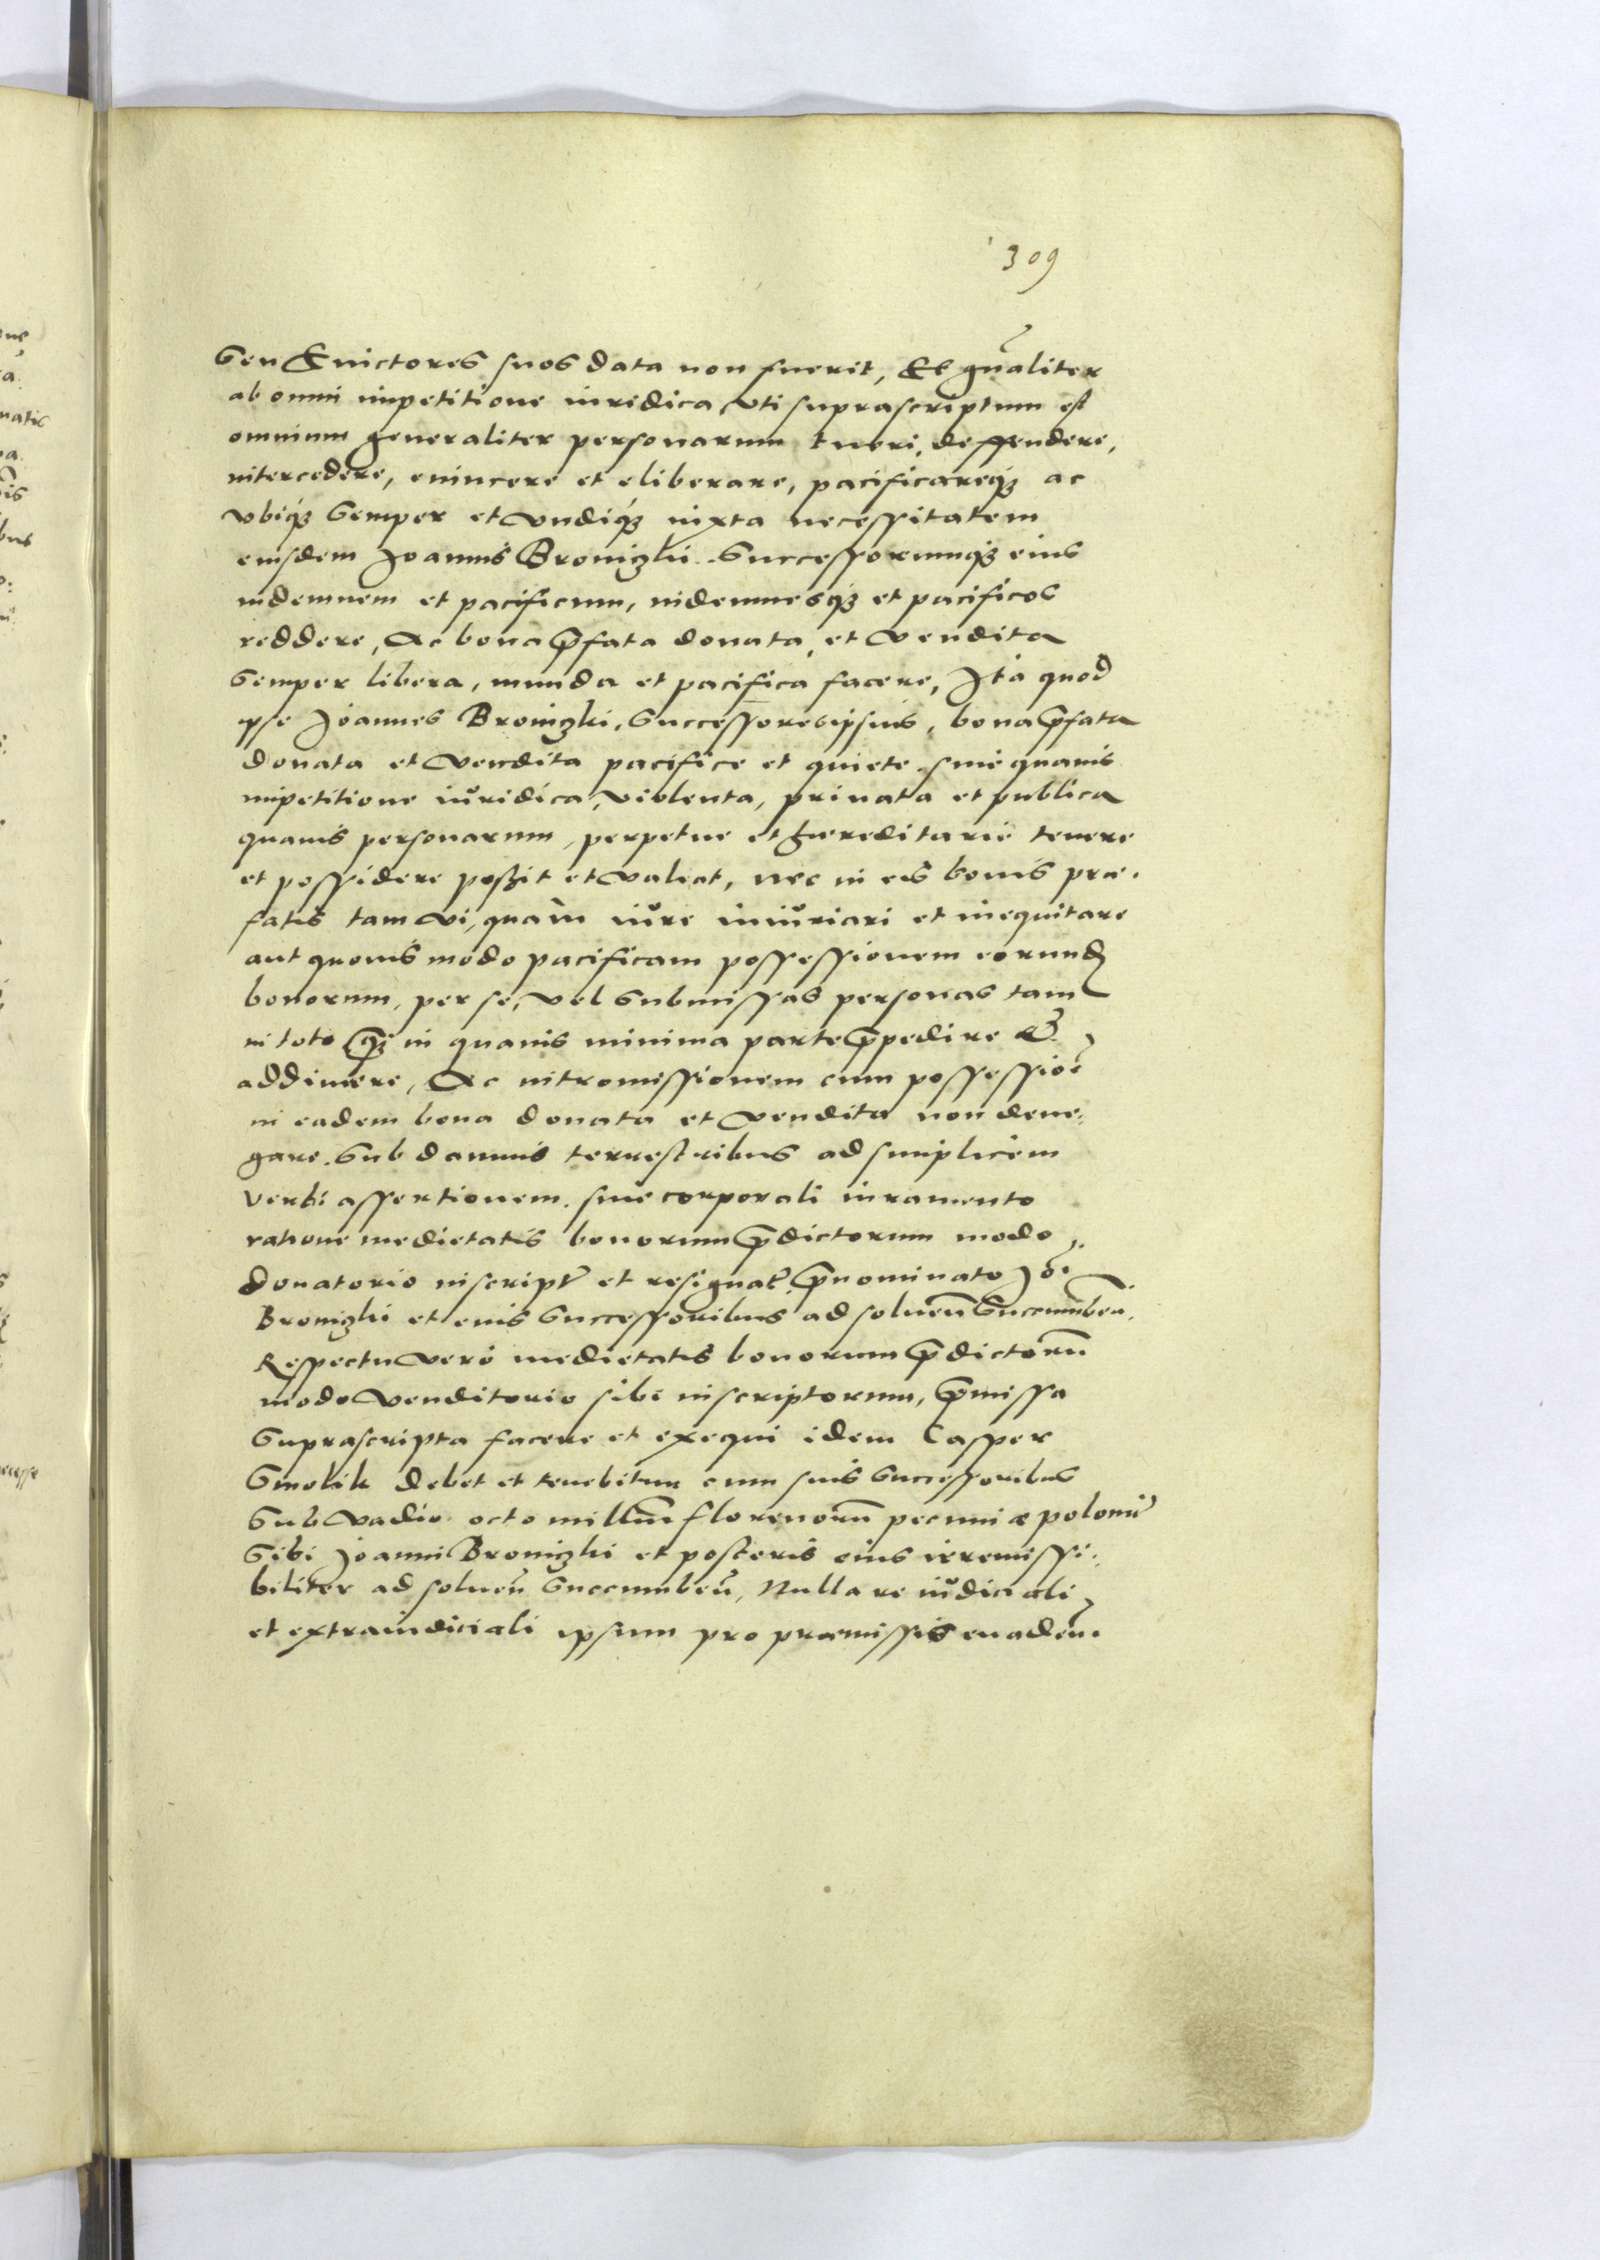 309
Seu Euictores suos data non fuerit, Et gnaliter
ab omni impetitione iuridica, vti suprascriptum est
omnium generaliter personarum tueri, deffendere,
intercedere, euincere et eliberare, pacificareq3 ac
vbiq3 Semper et Vndiq3 iuxta necessitatem
eiusdem Joannis Broniczki. Successorumq3 eius
indemnem et pacificum, indemnesq3 et pacificos
reddere, Ac bona pfata donata, et Vendita
Semper libera, munda et pacifica facere, Ita quod
ipse Joannes Broniczki, Successores ipsius, bona pfata
donata et Vendita pacifice et quiete sine quauis
impetitione iuridica, violenta, priuata et publica
quauis personarum, perpetue et haereditarie tenere
et possidere possit et Valeat, nec in eis bonis prae.
fatis tam Vi, quam iure iniuriari et inequitare
aut quouis modo pacificam possessionem eorund
bonorum, per se, Vel Submissas personas tam
in toto q3 in quauis minima parte ppedire &
addimere, Ac intromissionem cum possessioe
in eadem bona donata et Vendita non dene,
gare. Sub damnis terrestribus ad simplicem
Verbi assertionem. sine corporali iuramento
ratione medietatis bonorum pdictorum modo
donatorio inscript et resignat. pnominato Joi
Broniczki et eius Successoribus ad soluen Succumben.
Respectu Vero medietatis bonorum pdictoru
modo Venditorio sibi inscriptorum, pmissa
Suprascripta facere et exequi idem Casper
Smolik debet et tenebitur cum suis Successoribus
Sub Vadio octo millium florenoru pecuniae poloni
Sibi Joanni Broniczki et posteris eius irremissi.
biliter ad soluen Succumben, Nulla re iudiciali
et extraiudiciali ipsum pro praemissis euaden.